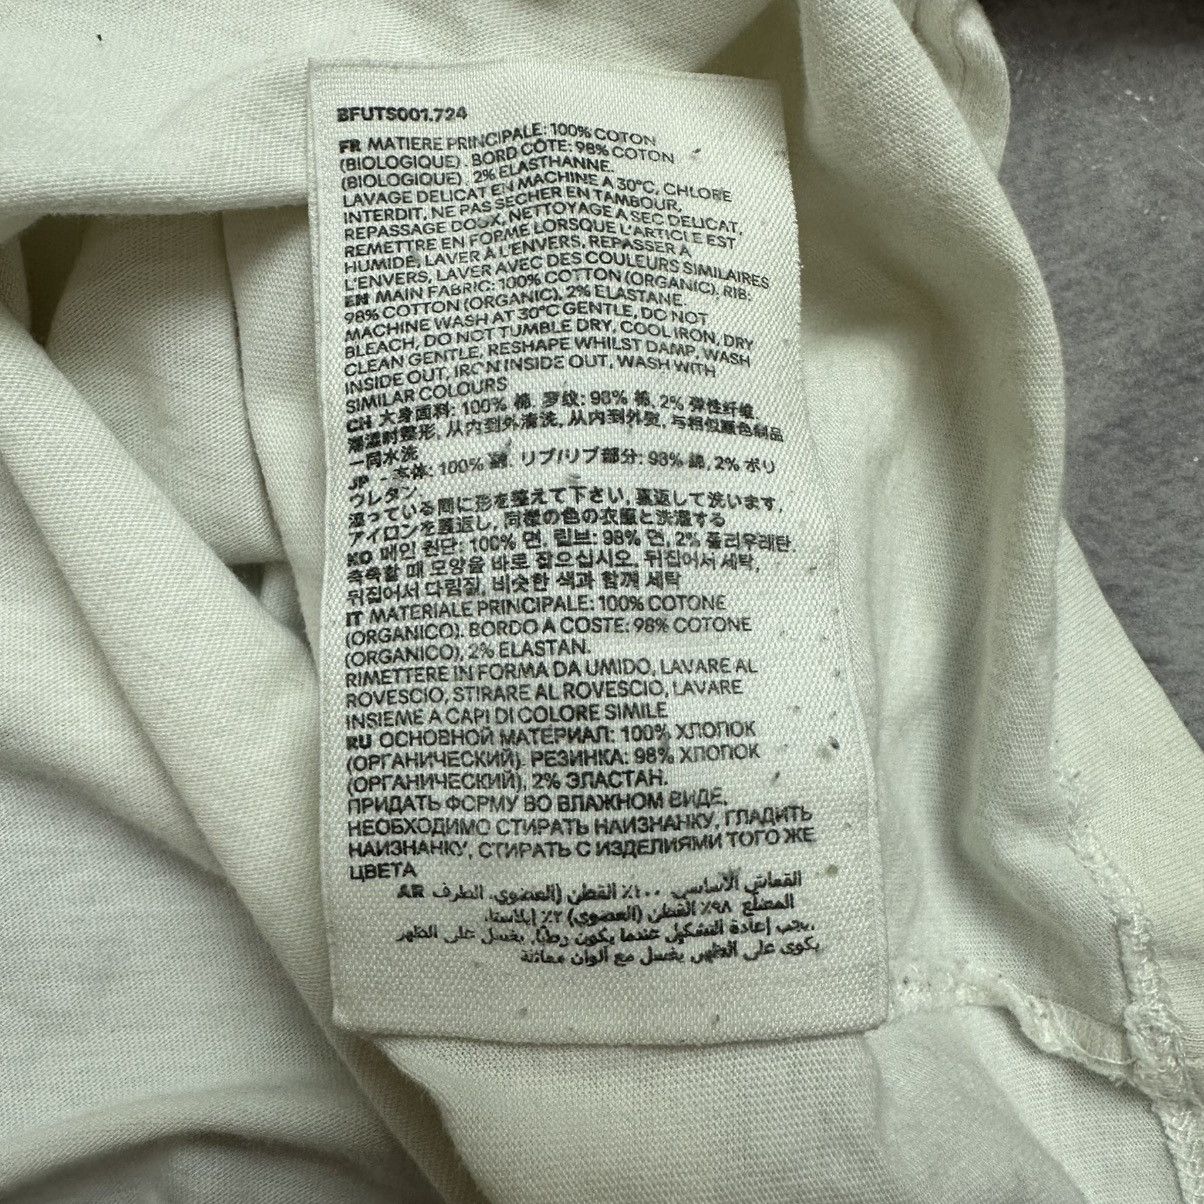 BFUTS001.724
FR MATIERE PRINCIPALE: 100% COTON
(BIOLOGIQUE). BORD CÔTE: 98% COTON
(BIOLOGIQUE), 2% ELASTHANNE.
LAVAGE DELICAT EN MACHINE A 30°C, CHLORE
INTERDIT, NE PAS SECHER EN TAMBOUR,
REPASSAGE DOUX, NETTOYAGE A SEC DELICAT,
REMETTRE EN FORME LORSQUE L'ARTICLE EST
HUMIDE, LAVER A L'ENVERS, REPASSER A
L'ENVERS, LAVER AVEC DES COULEURS SIMILAIRES
EN MAIN FABRIC: 100% COTTON (ORGANIC). RIB:
98% COTTON (ORGANIC), 2% ELASTANE.
MACHINE WASH AT 30°C GENTLE, DO NOT
BLEACH, DO NOT TUMBLE DRY, COOL IRON, DRY
CLEAN GENTLE, RESHAPE WHILST DAMP, WASH
INSIDE OUT, IRON INSIDE OUT, WASH WITH
SIMILAR COLOURS
CH 大身面料: 100% 棉. 罗纹: 98% 棉, 2% 弹性纤维.
潮湿时整形, 从内到外清洗, 从内到外熨, 与相似颜色制品
一同水洗
JP - 本体: 100% 綿. リブ/リブ部分: 98% 綿, 2% ポリ
ウレタン.
湿っている間に形を整えて下さい, 裏返して洗います,
アイロンを裏返し, 同様の色の衣服と洗濯する
KO 메인 원단: 100% 면. 립브: 98% 면, 2% 폴리우레탄.
축축할 때 모양을 바로 잡으십시오, 뒤집어서 세탁,
뒤집어서 다림질, 비슷한 색과 함께 세탁
IT MATERIALE PRINCIPALE: 100% COTONE
(ORGANICO). BORDO A COSTE: 98% COTONE
(ORGANICO), 2% ELASTAN.
RIMETTERE IN FORMA DA UMIDO, LAVARE AL
ROVESCIO, STIRARE AL ROVESCIO, LAVARE
INSIEME A CAPI DI COLORE SIMILE
RU ОСНОВНОЙ МАТЕРИАЛ: 100% ХЛОПОК
(ОРГАНИЧЕСКИЙ). РЕЗИНКА: 98% ХЛОПОК
(ОРГАНИЧЕСКИЙ), 2% ЭЛАСТАН.
ПРИДАТЬ ФОРМУ ВО ВЛАЖНОМ ВИДЕ,
НЕОБХОДИМО СТИРАТЬ НАИЗНАНКУ, ГЛАДИТЬ
НАИЗНАНКУ, СТИРАТЬ С ИЗДЕЛИЯМИ ТОГО ЖЕ
ЦВЕТА
AR القماش الأساسي: ١٠٠٪ القطن (العضوي). الطرف
المضلع ٩٨٪ القطن (العضوي) ٢٪ إيلاستا.
يجب إعادة التشكيل عندما يكون رطبًا, يغسل على الظهر,
يكوى على الظهر, يغسل مع ألوان مماثلة